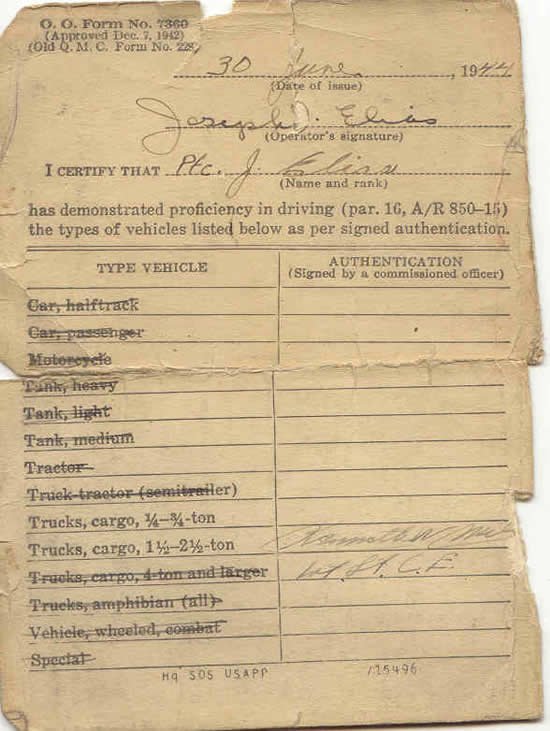 O. O. Form No. 7360
(Approved Dec. 7, 1942)
(Old Q. M. C. Form No. 228)
30 June, 1944
(Date of issue)
Joseph J. Elias
(Operator's signature)
I CERTIFY THAT Pfc. J. Elias
(Name and rank)
has demonstrated proficiency in driving (par. 16, A/R 850–15)
the types of vehicles listed below as per signed authentication.
TYPE VEHICLE AUTHENTICATION
(Signed by a commissioned officer)
Car, halftrack
Car, passenger
Motorcycle
Tank, heavy
Tank, light
Tank, medium
Tractor
Truck-tractor (semitrailer)
Trucks, cargo, ¼–¾-ton
Trucks, cargo, 1½–2½-ton Kenneth
Trucks, cargo, 4-ton and larger Lt. C.E.
Trucks, amphibian (all)
Vehicle, wheeled, combat
Special
HQ SOS USAPP 125496